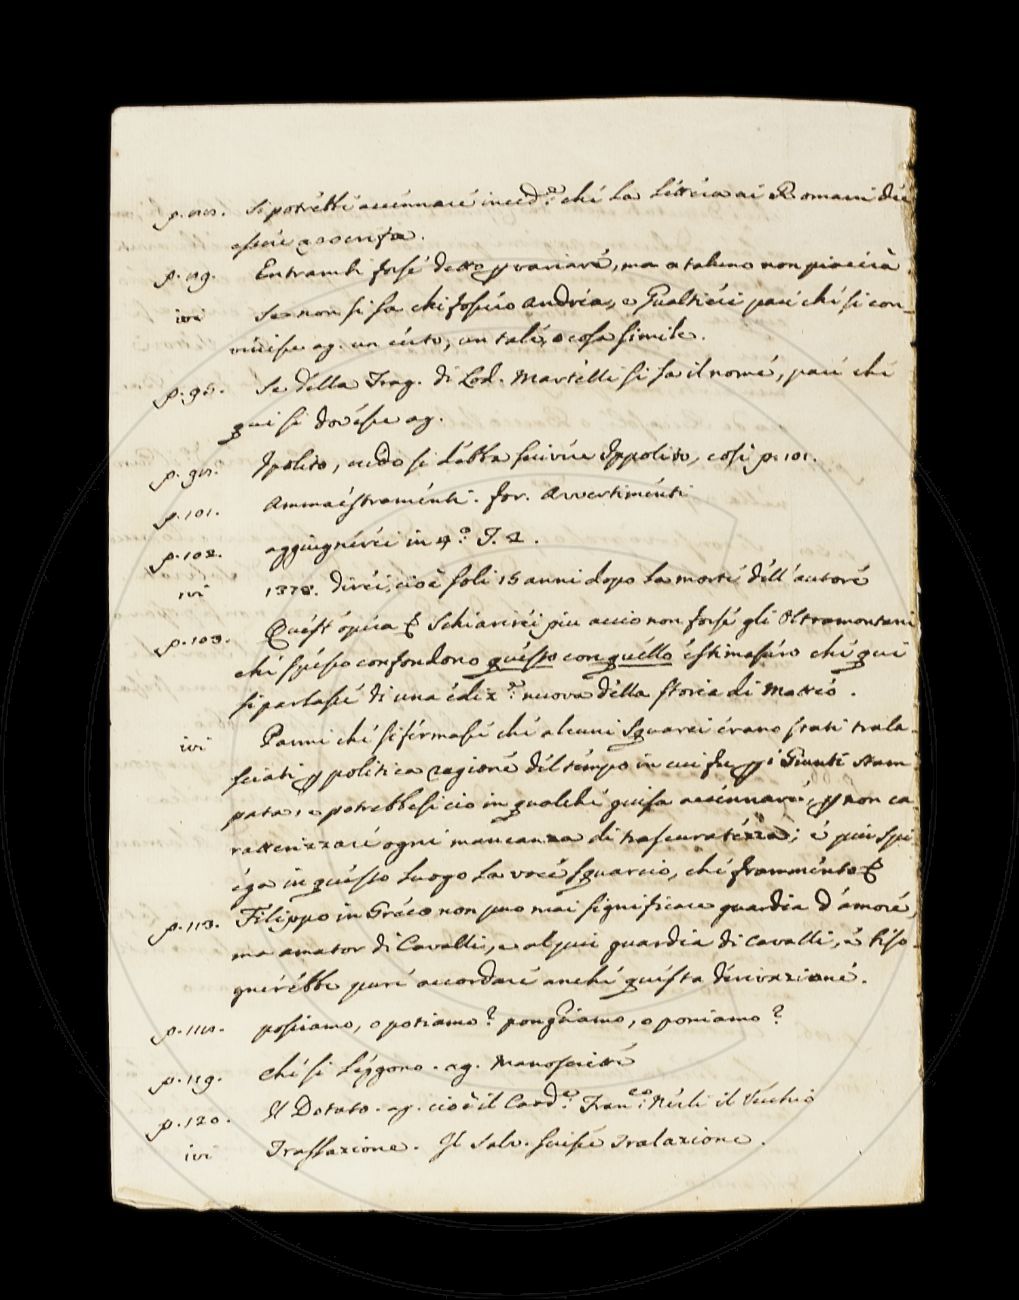 Si potrebbe accennare in ced.e che la Lettera ai Romani dee
essere apocrifa.
p. 89. Entrambi forse detto p variare, ma a taluno non piacerà
ivi Se non si sa chi fossero Andrea, e Gualtieri pare che si con-
venisse ag. un certo, un tale, o cosa simile.
p. 95. Se della Trag. di Lod. Martelli si sa il nome, pare che
qui si dovesse ag.
Ipolito, credo si debba scrivere Ippolito, così p. 101.
p. 101. Ammaestramenti. for. Avvertimenti
p. 102. aggiugnerei in 4.o T. 2.
ivi 1378. direi, cioè soli 15 anni dopo la morte dell'autore
p. 103. Quest'opera & Schiarirei più acciò non forse gli Oltramontani
che spesso confondono questo con quello estimassero che qui
si parlasse di una ediz.e nuova della storia di Matteo.
ivi Parmi che si fermasse che alcuni squarci erano stati trala-
sciati p politica ragione del tempo in cui fu p i Giunti stam
pata, e potrebbesi ciò in qualche guisa accennare, p non ca-
ratterizzare ogni mancanza di trascuratezza; e più spi-
ega in questo luogo la voce squarcio, che frammento &
p. 113. Filippo in Greco non può mai significare guardia d'amore,
ma amator di Cavalli, e al più guardia di cavalli, e biso-
gnerebbe pure accordare anche questa derivazione.
possiamo, o potiamo? ponghiamo, o poniamo?
p. 119. che si leggono. ag. Manoscritte
p. 120. Il Dotato. ag. cioè il Card.e Fran.co Nerli il Vecchio
ivi Traslazione. Il Salv. scrisse Tralazione.